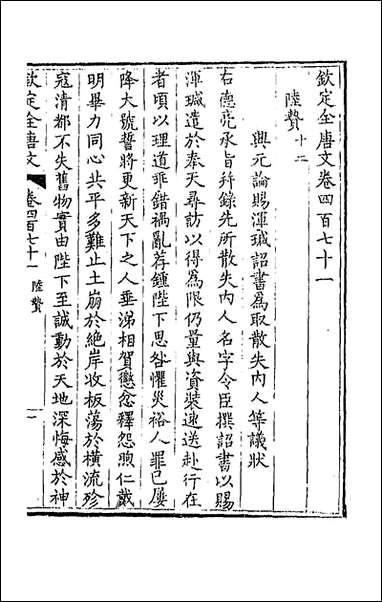 欽定全唐文卷四百七十一
陸贄十二
興元論賜渾瑊詔書為取散失內人等議狀
右德亮承旨并錄先所散失內人名字令臣撰詔書以賜
渾瑊遣於奉天尋訪以得為限仍量與資裝速送赴行在
者頃以理道乖錯禍亂荐鍾陛下思咎懼災裕人罪己屢
降大號誓將更新天下之人垂涕相賀懲忿釋怨煦仁戴
明畢力同心共平多難止土崩於絕岸收板蕩於橫流殄
寇清都不失舊物實由陛下至誠動於天地深悔感於神
欽定全唐文 卷四百七十一 陸贄 一